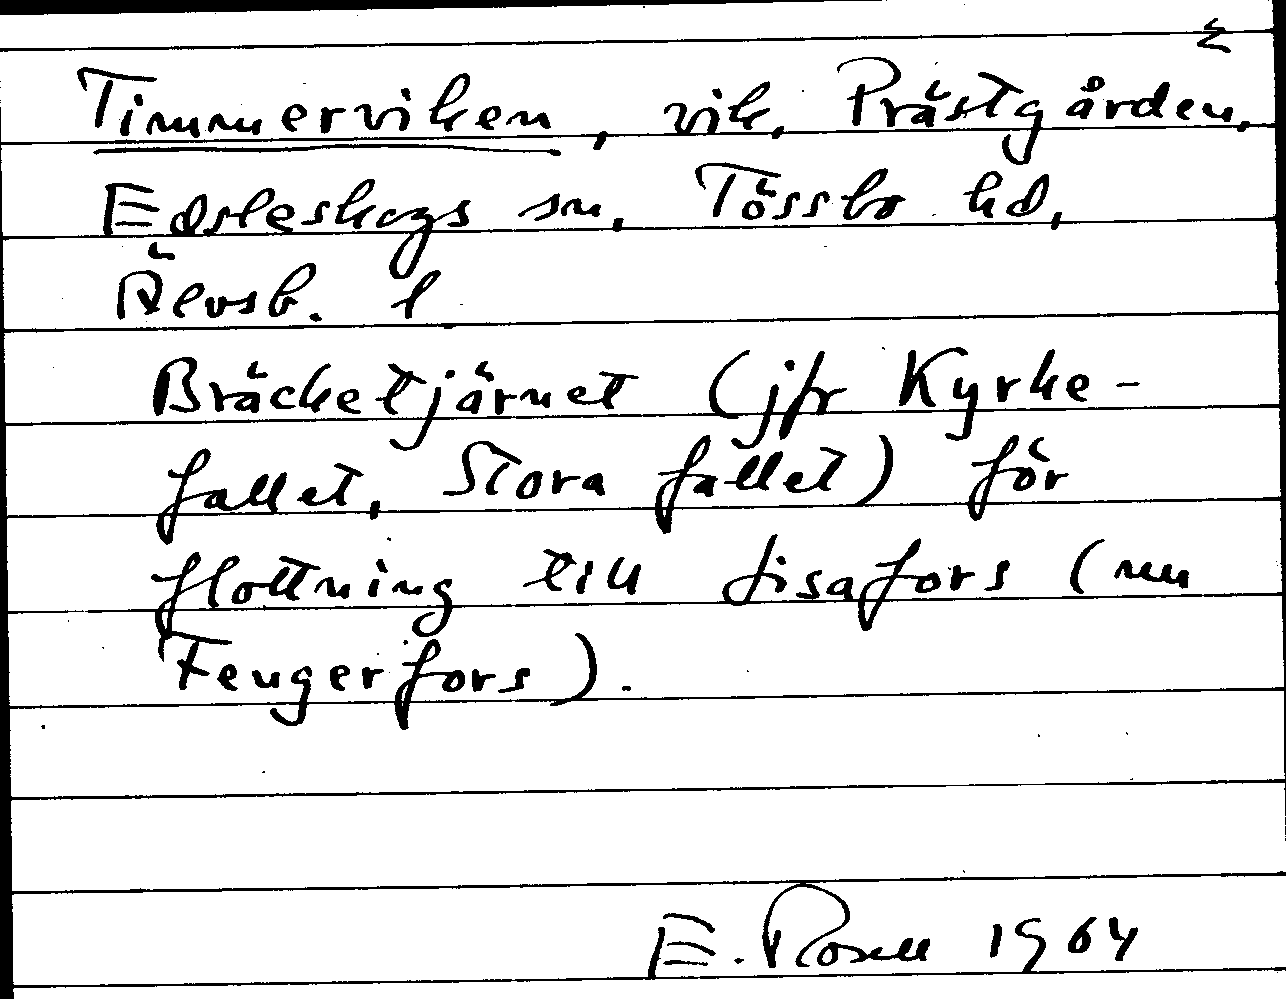 Timmerviken, vik, Prästgården,
Edsleskogs sn, Tössbo hd,
Älvsb. l
Bräcketjärnet (jfr Kyrke-
fallet, Stora fallet) för
flottning till Lisafors (nu
Fengerfors).
E. Rosell 1964